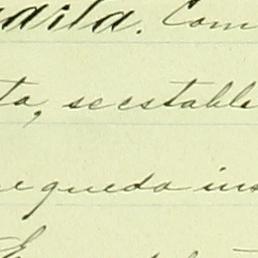 adrita. Com
ta, se estable
e queda ins